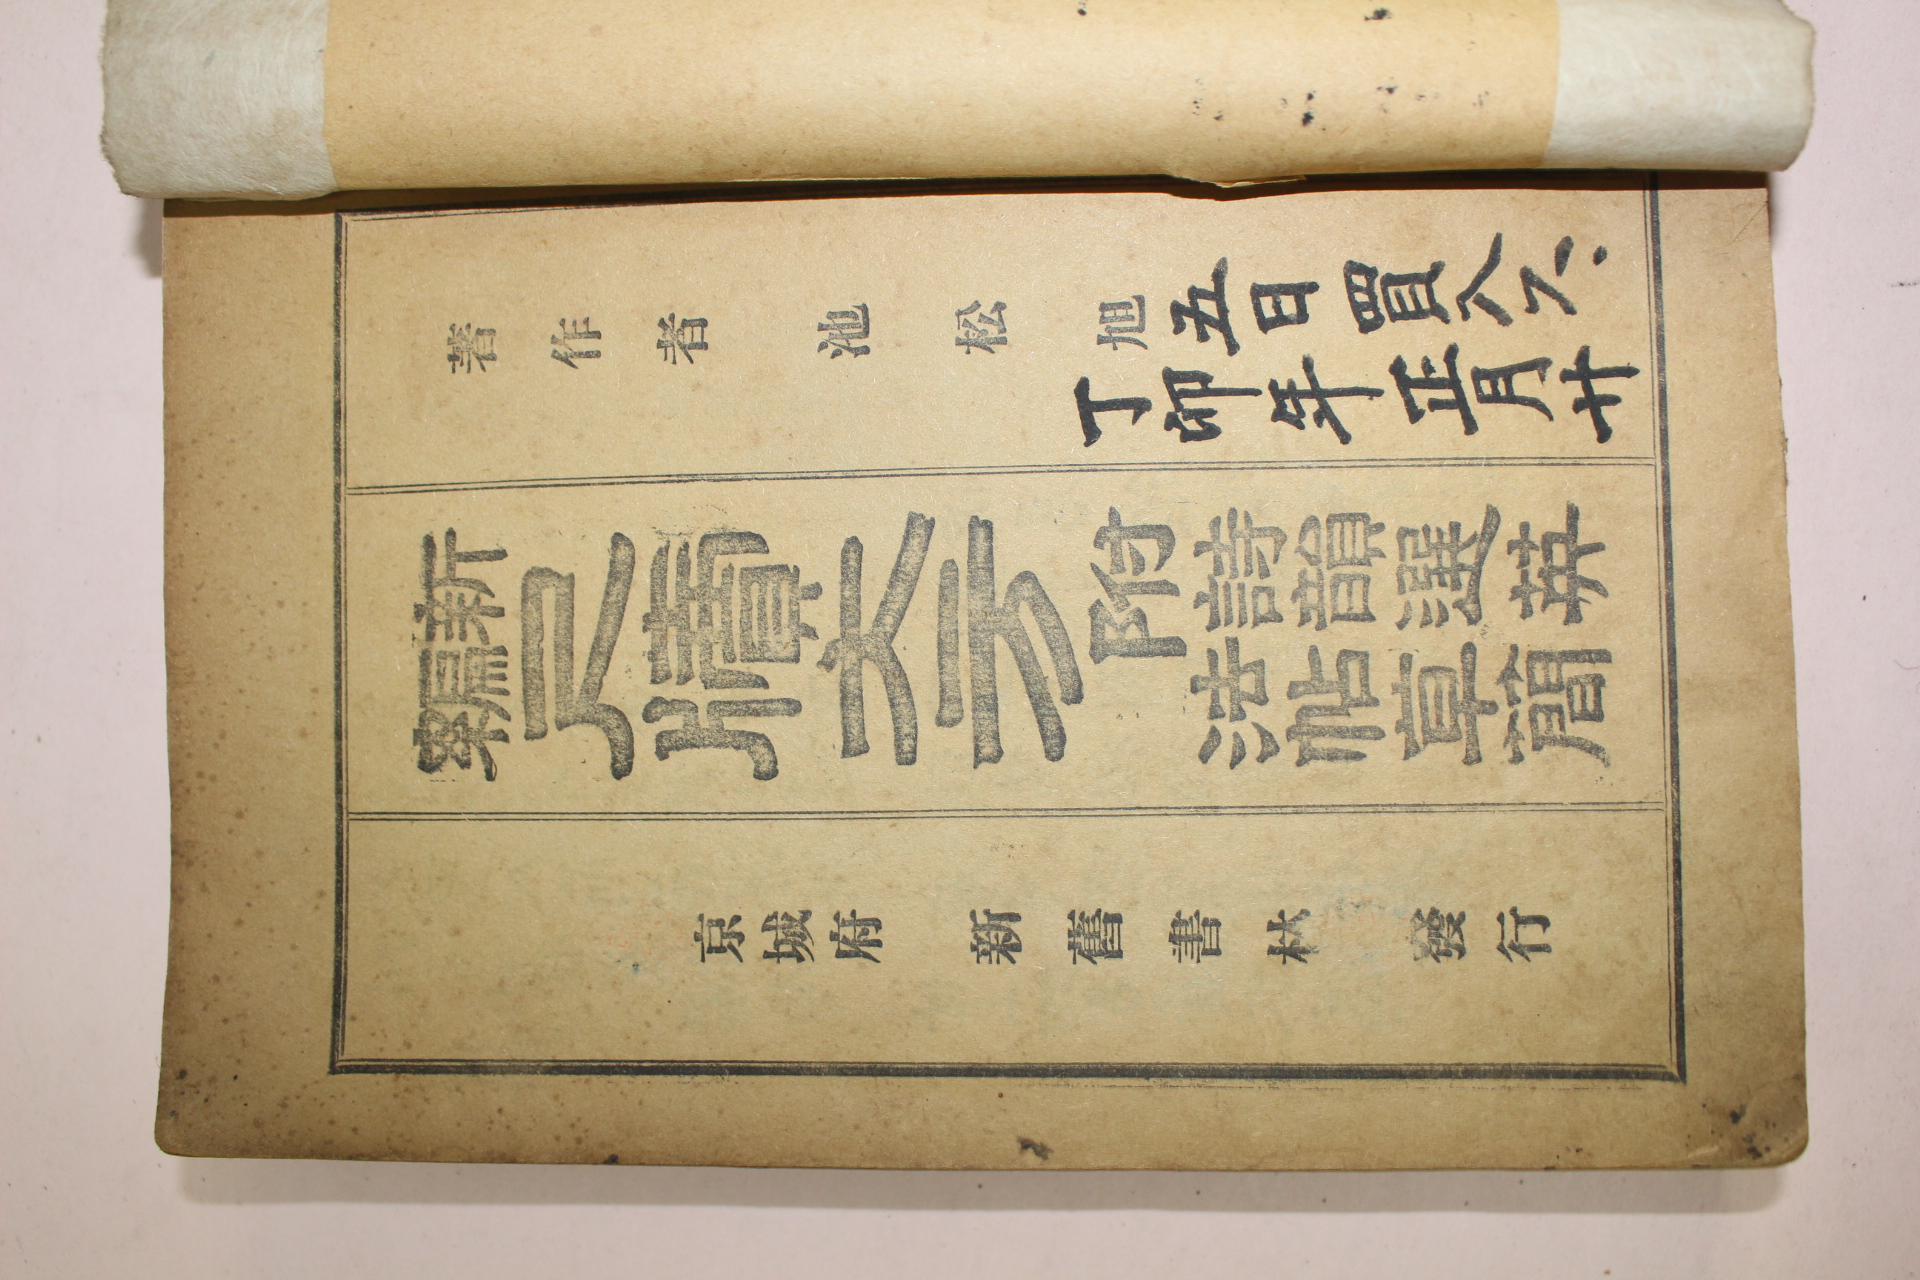 著作者 池松旭
丁卯年正月廿
五日買入ス、
新編
尺牘大方
附
詩韻選萃
法帖章簡
京城府 新舊書林 發行